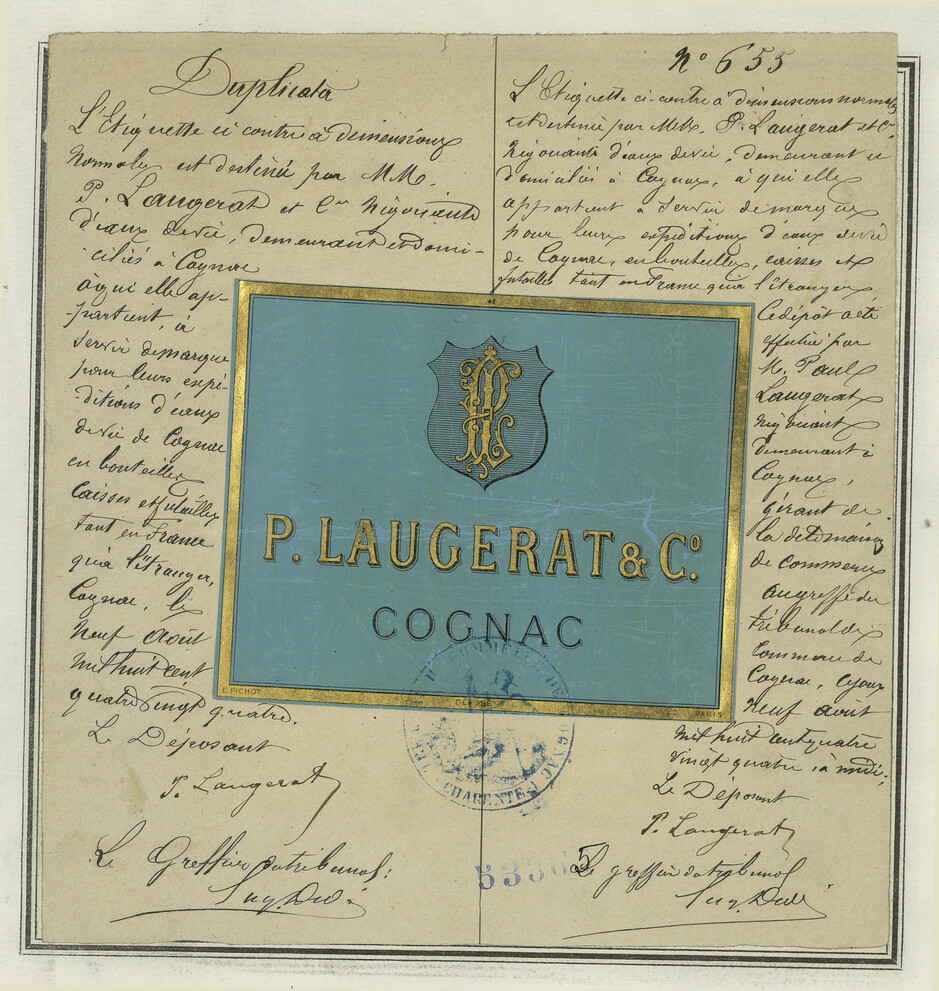 Duplicata
L'Etiquette ci contre à dimensions
normales est destinée par M.M.
P. Laugerat et Cie Négociants
d'eaux de vie, demeurant et domi-
-ciliés à Cognac
à qui elle ap-
-partient, à
servir de marque
pour leurs expé-
-ditions d'eaux
de vie de Cognac
en bouteilles
Caisses et futailles
tant en France
qu'à l'étranger,
Cognac, le
neuf août
mil huit cent
quatre vingt quatre.
Le Déposant
P. Laugerat
Le Greffier du tribunal:
N° 655
L'Etiquette ci-contre à dimensions normales
est destinée par MM. P. Laugerat et Cie
Négociants d'eaux de vie, demeurant et
domiciliés à Cognac, à qui elle
appartient à servir de marque
pour leurs expéditions d'eaux de vie
de Cognac, en bouteilles, caisses et
futailles tant en France qu'à l'étranger,
Ce dépôt a été
effectué par
M. Paul
Laugerat
négociant
demeurant à
Cognac,
gérant de
la dite maison
de commerce
au greffe du
tribunal de
Commerce de
Cognac, ce jour
neuf août
mil huit cent quatre
vingt quatre, à midi.
Le Déposant
P. Laugerat
Le greffier du tribunal
P. LAUGERAT & Cº.
COGNAC
E. PICHOT
DÉPOSÉ
PARIS
DE COMMERCE DE COGNAC
CHARENTE
5330
5